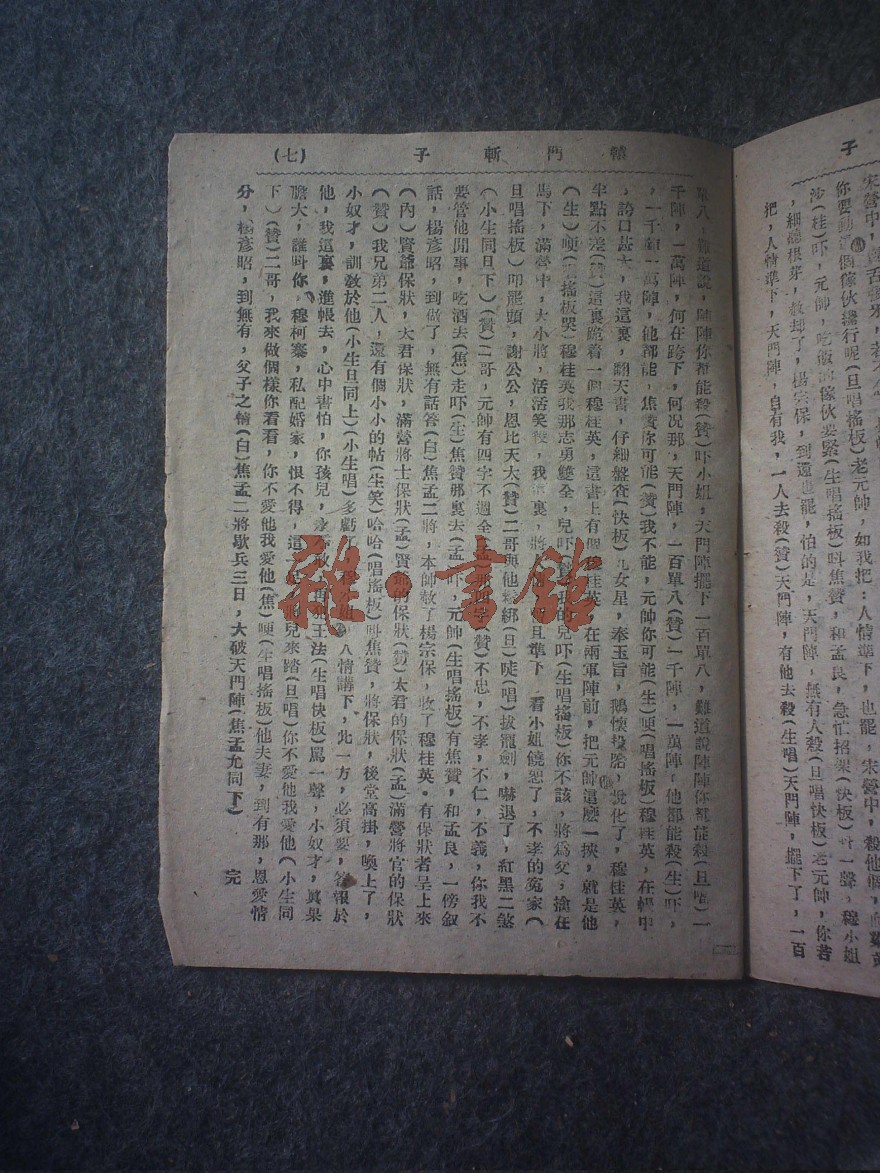 子
宋營中,
你要動個傢伙纔行呢(旦唱搖板)老元帥,如我把:人情準下,也罷,宋營中,殺他
沙(桂)吓,元帥,吃飯的傢伙要緊(生唱搖板)呌焦贊,和孟良,急忙招架(快板)呌一聲,穆小姐
,細聽根芽,赦却了,楊宗保,到還也罷,怕的是,天門陣,無有人殺(旦唱快板)老元帥,你若
把,人情準下,天門陣,自有我,一人去殺(贊)天門陣,有他去殺(生唱)天門陣,擺下了,一百
轅門斬子 (七)
單八,難道說,陣陣你都能殺(贊)吓小姐,天門陣擺下一百單八,難道說陣陣你都能殺(旦唱)一
千陣,一萬陣,何在跨下,何况那,天門陣,一百單八(贊)一千陣,一萬陣,他都能殺(生)吓,
,一千陣一萬陣,他都能,焦贊你可能(贊)我不能,元帥你可能(生)哽(唱搖板)穆桂英,在帳中
,誇口甚大,我這裏,翻天書,仔細盤查(快板)九女星,奉玉旨,鵝懷投胎,批化了,穆桂英,
半點不差(贊)這裏跪着一個穆桂英,這書上有個穆桂英,在兩軍陣前,把元帥這麽一挾,就是他
(生)哽(唱搖板哭)穆桂英我那志勇雙全,兒吓(贊)我的兒吓(生唱搖板)你不該,將爲父,擒在
馬下,滿營中,大小將,活活笑殺,我這裏,將人情,且準下 看小姐饒恕了,不孝的冤家(
旦唱搖板)叩罷頭,謝公公,恩比天大(贊)二哥與他鬆綁(旦)唗(唱)拔寵劍,嚇退了,紅黑二煞
(小生同旦下)(贊)二哥,元帥有四字不週全(孟)那四字(贊)不忠,不孝,不仁,不義,你我不
要管他閒事,吃酒去(焦)走吓(生)焦贊那裏去(孟)吓,元帥(生唱搖板)有焦贊,和孟良,一傍叙
話,楊彥昭,到做了,無有話答(白)焦孟二將,本帥赦了楊宗保,收了穆桂英。有保狀者呈上來
(內)賢爺保狀,太君保狀,滿營將士保狀(孟)賢爺的保狀(贊)太君的保狀(孟)滿營將官的保狀
(贊)我兄弟二人,還有個小小的帖(生笑)哈哈(唱搖板)呌焦贊,將保狀,後堂高掛,喚上了,
小奴才,訓敎於他(小生旦同上)(小生唱)多虧了,八情講下,此一方,必須要,答報於
他,我這裏,進帳去,心中害怕,你孩兒,王法(生唱快板)罵一聲,小奴才,眞果
膽大,誰呌你,穆柯寨,私配婚家,恨不得,這一足,兒來踏(旦唱)你不愛他我愛他(小生同
下)(贊)二哥,我來做個樣你看看,你不愛他我愛他(焦)哽(生唱搖板)他夫妻,到有那,恩愛情
分,楊彥昭,到無有,父子之情(白)焦孟二將歇兵三日,大破天門陣(焦孟允同下) 完
雜·書館